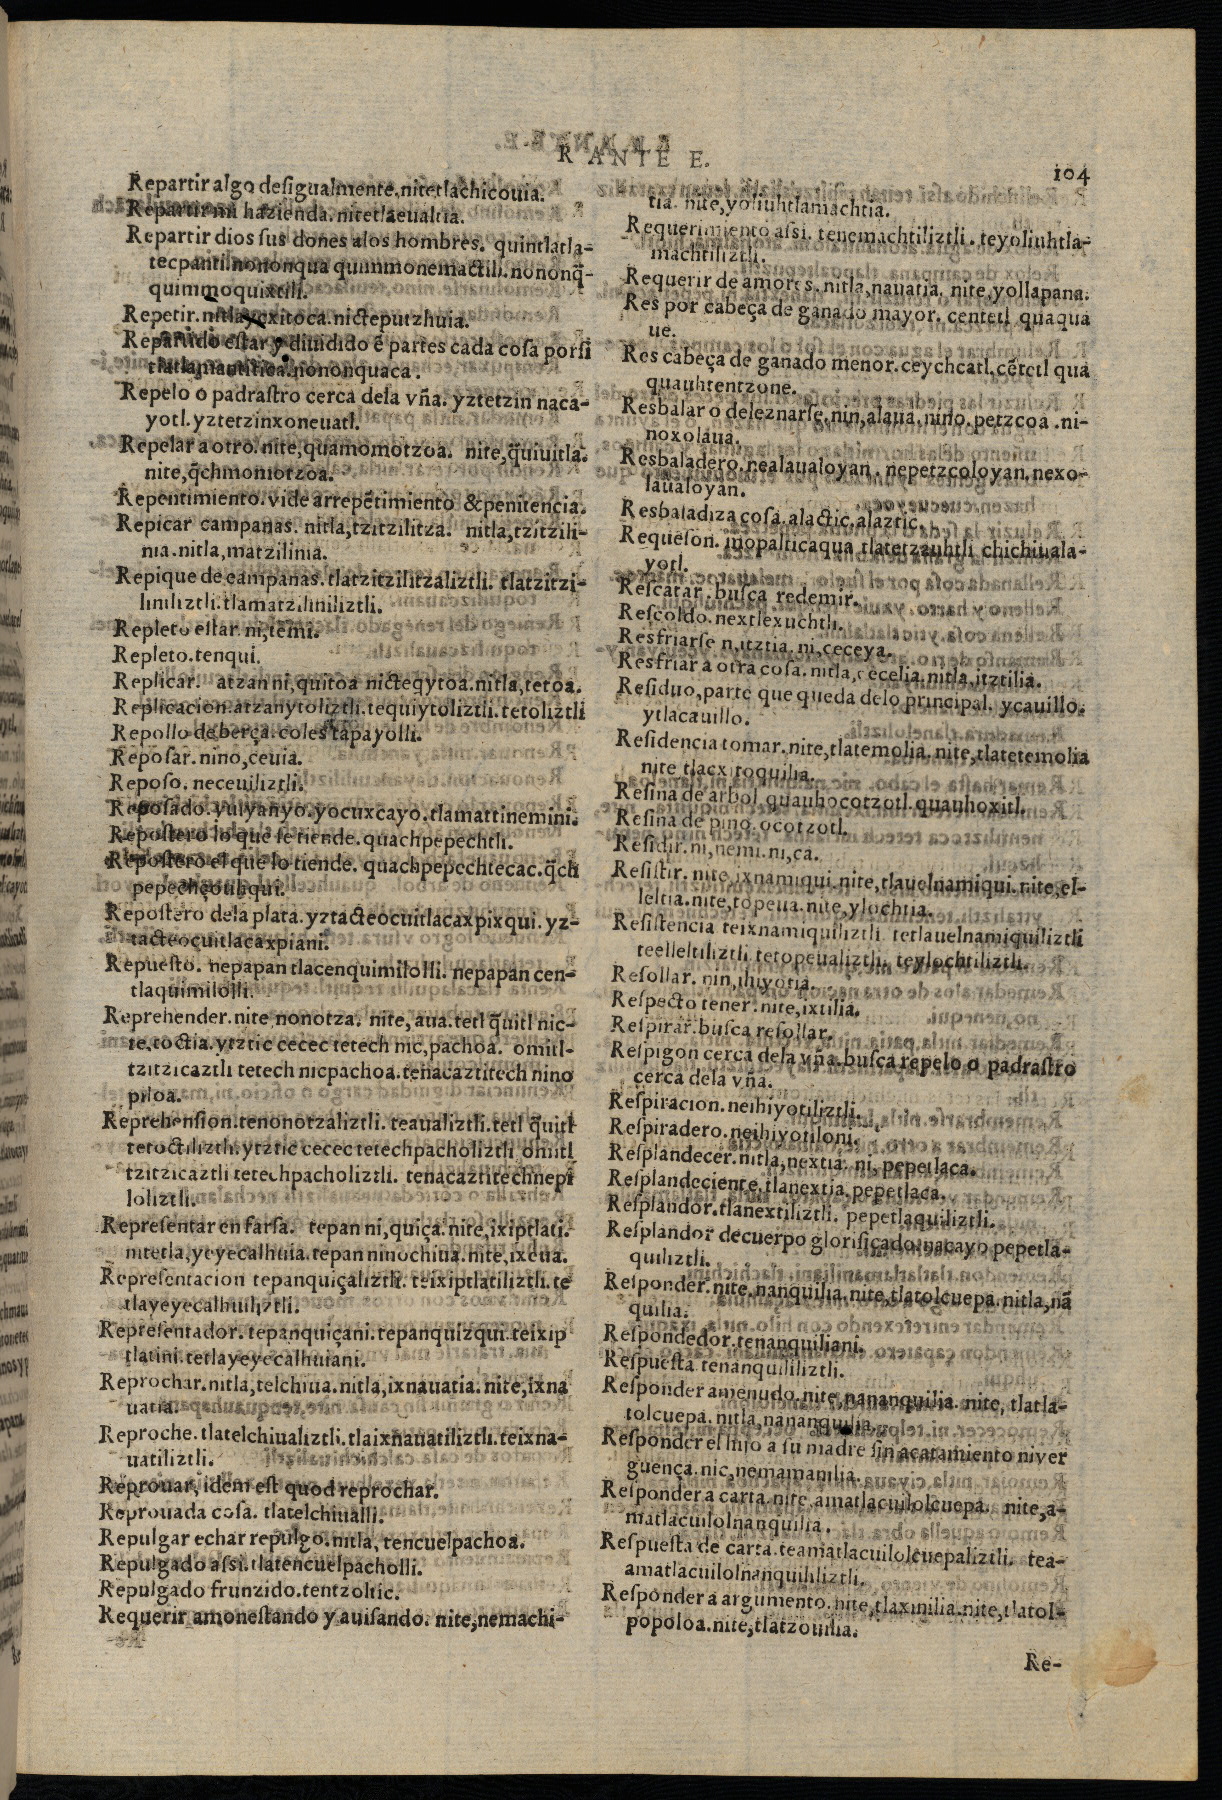 R ANTE E.
104
Repartir algo desigualmente. nitetlachicouia.
Repartir mi hazienda. nitetlaeualtia.
Repartir dios sus dones alos hombres. quintlatla-
tecpanti. nononqua quimmonemactili. nononq̃-
quimmoquixtili.
Repetir. nitlayexitoca. nicteputzhuia.
Repartido estar y diuidido ẽ partes cada cosa porsi
nononquaca.
Repelo o padrastro cerca dela vña. yztetzin naca-
yotl. yztetzinxoneuatl.
Repelar a otro. nite, quamomotzoa. nite, q̃uiuitla.
nite, q̃chmomotzoa.
Repentimiento. vide arrepẽtimiento & penitencia.
Repicar campanas. nitla, tzitzilitza. nitla, tzitzili-
nia. nitla, matzilinia.
Repique de campanas. tlatzitzilitzaliztli. tlatzitzi-
liniliztli. tlamatziliniliztli.
Repleto estar. ni, tẽmi.
Repleto. tenqui.
Replicar. atzan ni, quitoa nicteqytoa. nitla, tetoa.
Replicacion. atzanytoliztli. tequiytoliztli. tetoliztli
Repollo de berça. coles tapayolli.
Reposar. nino, ceuia.
Reposo. neceuiliztli.
Reposado. yulyanyo. yocuxcayo. tlamattinemini.
Repostero lo que se tiende. quachpepechtli.
Repostero el que lo tiende. quachpepechtecac. q̃ch
pepechçouhqui.
Repostero dela plata. yztacteocuitlacaxpixqui. yz-
tacteocuitlacaxpiani.
Repuesto. nepapan tlacenquimilolli. nepapan cen-
tlaquimilolli.
Reprehender. nite nonotza. nite, aua. tetl q̃uitl nic-
te, toctia. ytztic cecec tetech nic, pachoa. omitl-
tzitzicaztli tetech nicpachoa. tenacaztitech nino
piloa.
Reprehension. tenonotzaliztli. teaualiztli. tetl q̃uitl
tetoctiliztli. ytztic cecec tetechpacholiztli, omitl
tzitzicaztli tetechpacholiztli. tenacaztitechnepi
loliztli.
Representar en farsa. tepan ni, quiça. nite, ixiptlati.
nitetla, yeyecalhuia. tepan ninochiua. nite, ixeua.
Representacion tepanquiçaliztli. teixiptlatiliztli. te
tlayeyecalhuiliztli.
Representador. tepanquiçani. tepanquizqui. teixip
tlatini. tetlayeyecalhuiani.
Reprochar. nitla, telchiua. nitla, ixnauatia. nite, ixna
uatia.
Reproche. tlatelchiualiztli. tlaixnauatiliztli. teixna-
uatiliztli.
Reprouar, idem est quod reprochar.
Reprouada cosa. tlatelchiualli.
Repulgar echar repulgo. nitla, tencuelpachoa.
Repulgado assi. tlatencuelpacholli.
Repulgado frunzido. tentzoltic.
Requerir amonestando y auisando. nite, nemachi-
tia. nite, yoliuhtlamachtia.
Requerimiento assi. tenemachtiliztli. teyoliuhtla-
machtiliztli.
Requerir de amores. nitla, nauatia. nite, yollapana.
Res por cabeça de ganado mayor. centetl quaqua
ue.
Res cabeça de ganado menor. ceychcatl. cẽtetl qua
quauhtentzone.
Resbalar o deleznarse. nin, alaua. nino. petzcoa. ni-
noxolaua.
Resbaladero. nealaualoyan. nepetzcoloyan. nexo-
laualoyan.
Resbaladiza cosa. alactic. alaztic.
Requeson. inopalticaqua tlatetzauhtli chichiuala-
yotl.
Rescatar. busca redemir.
Rescoldo. nextlexuchtli.
Resfriarse n, itztia. ni, ceceya.
Resfriar a otra cosa. nitla, cecelia. nitla, itztilia.
Residuo, parte que queda delo principal. ycauillo.
ytlacauillo.
Residencia tomar. nite, tlatemolia. nite, tlatetemolia
nite tlacxitoquilia.
Resina de arbol quauhocotzotl. quauhoxitl.
Resina de pino. ocotzotl.
Residir. ni, nemi. ni, ca.
Resistir. nite, ixnamiqui. nite, tlauelnamiqui. nite, el-
leltia. nite, topeua. nite, ylochtia.
Resistencia teixnamiquiliztli. tetlauelnamiquiliztli
teelleltiliztli tetopeualiztli. teylochtiliztli.
Resollar. nin, ihiyotia.
Respecto tener. nite, ixtilia.
Respirar. busca resollar.
Respigon cerca dela vña. busca repelo o padrastro
cerca dela vña.
Respiracion. neihiyotiliztli.
Respiradero. neihiyotiloni.
Resplandecer. nitla, nextia. ni, pepetlaca.
Resplandeciente. tlanextia. pepetlaca.
Resplandor. tlanextiliztli. pepetlaquiliztli.
Resplandor decuerpo glorificado. nacayo pepetla-
quiliztli.
Responder. nite. nanquilia. nite, tlatolcuepa. nitla, nã
quilia.
Respondedor. tenanquiliani.
Respuesta tenanquililiztli.
Responder amenudo. nite, nananquilia. nite, tlatla-
tolcuepa. nitla, nananquilia.
Responder el hijo a su madre sin acatamiento niver
guença. nic, nemamanilia.
Responder a carta. nite, amatlacuilolcuepa. nite, a-
matlacuilolnanquilia.
Respuesta de carta. teamatlacuilolcuepaliztli. tea-
amatlacuilolnanquililiztli.
Responder a argumento. nite, tlaxinilia. nite, tlatol-
popoloa. nite, tlatzouilia.
Re-